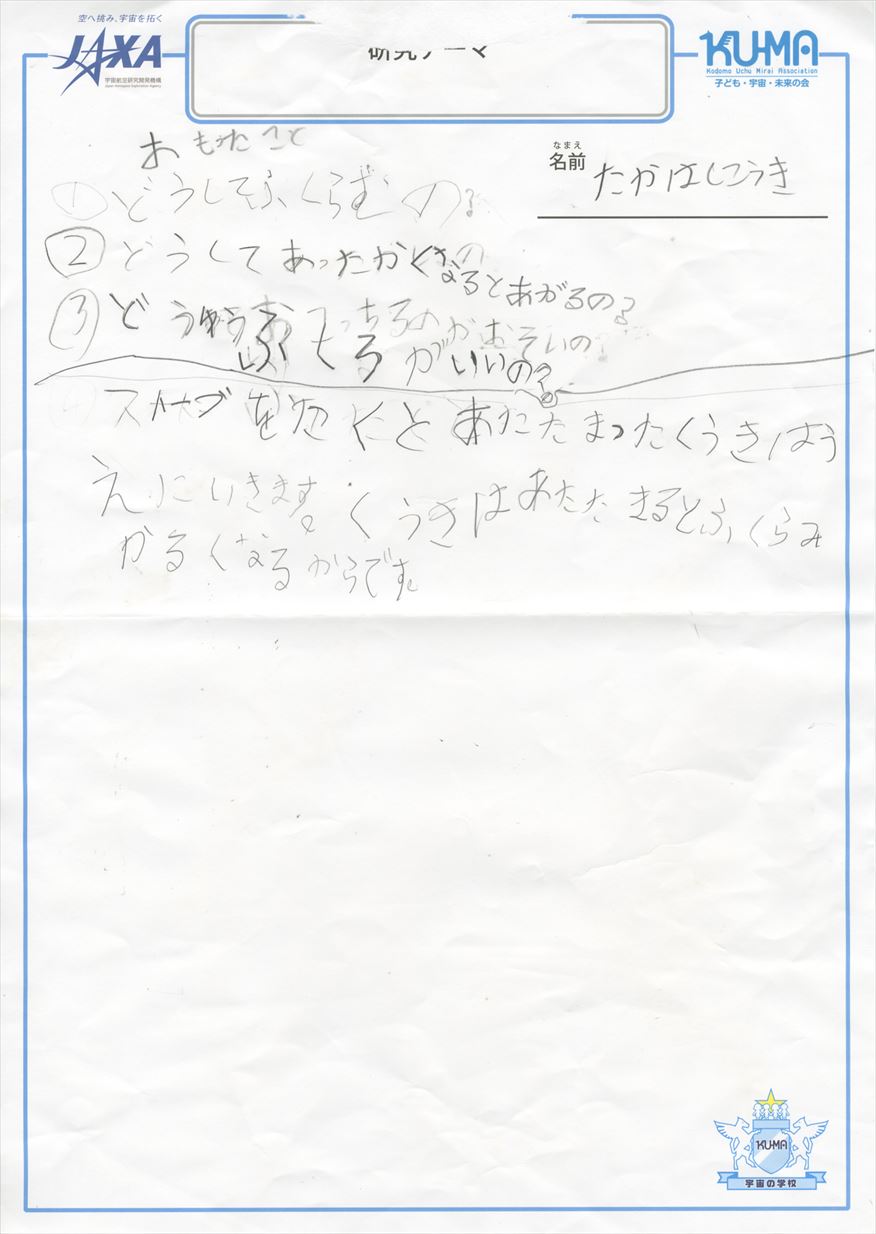 空へ挑み、宇宙を拓く
JAXA
宇宙航空研究開発機構
Japan Aerospace Exploration Agency
研究テーマ
KU-MA
Kodomo Uchu Mirai Association
子ども・宇宙・未来の会
なまえ
名前 たかはしこうき
おもたこと
① どうしてふくらむの?
② どうしてあったかくなるとあがるの?
③ どうゆう
ふくろがいいの?
をたくとあたたまったくうきはう
えにいきます。くうきはあたたまるとふくらみ
かるくなるからです。
KU-MA
宇宙の学校